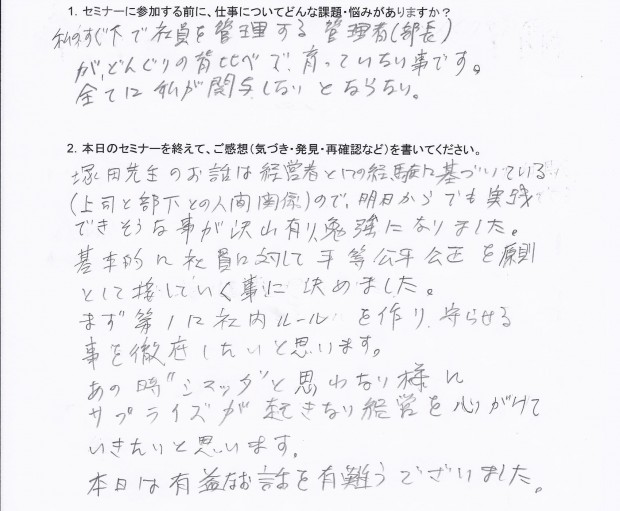 1. セミナーに参加する前に、仕事についてどんな課題・悩みがありますか？
私のすぐ下で社員を管理する管理者(部長)
が、どんぐりの背比べで、育っていない事です。
全てに私が関与しないとならない。
2. 本日のセミナーを終えて、ご感想（気づき・発見・再確認など）を書いてください。
塚田先生のお話は経営者としての経験に基づいている
(上司と部下との人間関係)ので、明日からでも実践
できそうな事が沢山有り、勉強になりました。
基本的に社員に対して平等公平公正を原則
として接していく事に決めました。
まず第1に社内ルールを作り、守らせる
事を徹底したいと思います。
あの時"シマッタ"と思わない様に
サプライズが起きない経営を心がけて
いきたいと思います。
本日は有益なお話を有難うございました。